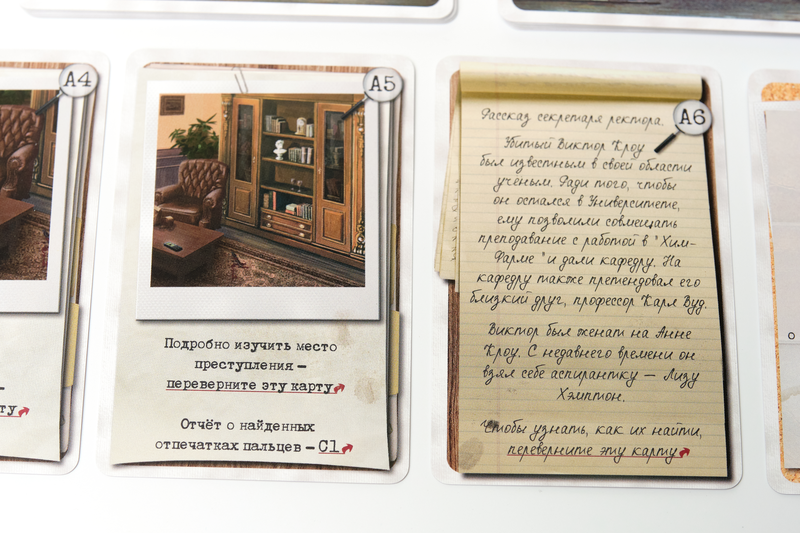 A4
ту
A5
Подробно изучить место
преступления —
переверните эту карту
Отчёт о найденных
отпечатках пальцев — C1
A6
Рассказ секретаря ректора.
Убитый Виктор Кроу
был известным в своей области
учёным. Ради того, чтобы
он остался в Университете,
ему позволили совмещать
преподавание с работой в "Хим-
Фарме" и дали кафедру. На
кафедру также претендовал его
близкий друг, профессор Карл Вуд.
Виктор был женат на Анне
Кроу. С недавнего времени он
взял себе аспирантку — Лизу
Хэмптон.
Чтобы узнать, как их найти,
переверните эту карту
о